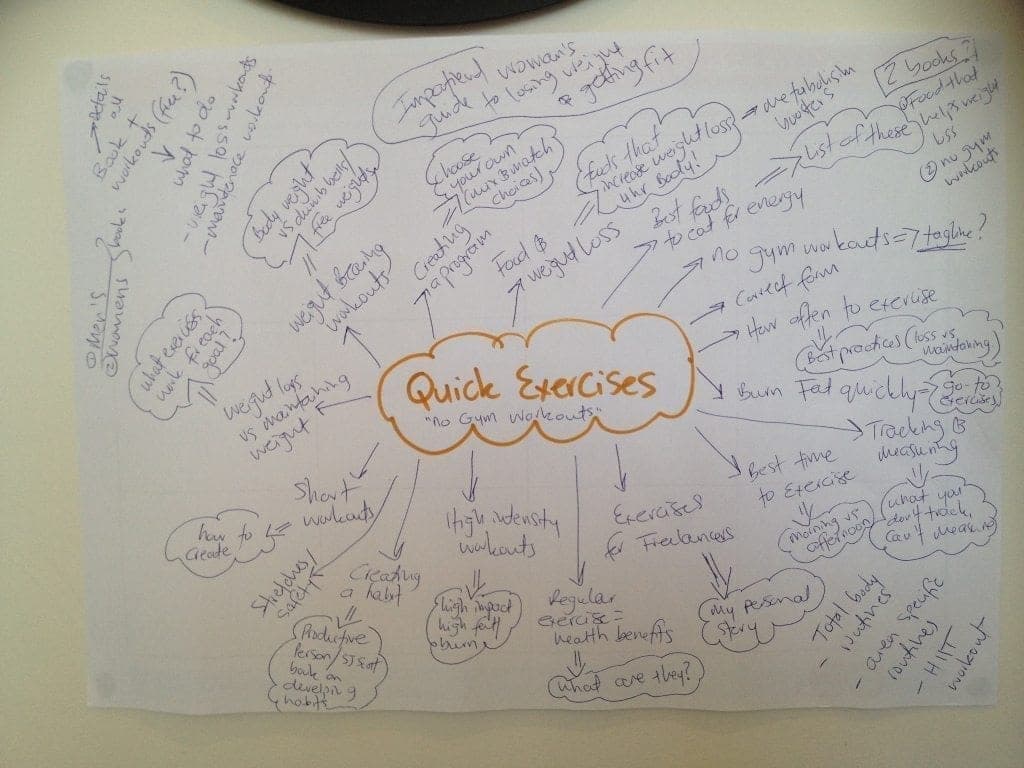 Impatient woman's
guide to losing weight
& getting fit
2 books?
① Food that
helps weight
loss
② no gym
workouts
→ details
Book all
workouts +
(Fee?)
what to do
- weight loss workouts
- maintenance workout.
① Men's
② Womens
books
Body weight
vs dumbbells/
Free weights
weight bearing
workouts
choose
your own
(mix & match
choices)
Creating
a program
foods that
increase weight loss
your body!
Food &
weight loss
→ metabolism
boosters
List of these
Best foods
to eat for energy
no gym workouts => tagline?
Correct form
How often to exercise
Best practices (loss vs
maintaining)
Burn Fat quickly =>
go-to
exercises
Tracking &
measuring
what you
don't track,
can't measure
Best time
to exercise
morning vs
afternoon
Exercises
for Freelancers
My personal
story
Regular
exercise =
health benefits
what are they?
High intensity
workouts
high impact
high fat
burn
Creating
a habit
Productive
Person/
book on
developing
habits
safely
Short
workouts
how to
create
weight loss
vs maintaining
weight
what exercises
work for each
goal?
Quick Exercises
"no Gym workouts"
- Total body
routines
- area specific
routines
- HIIT
workout